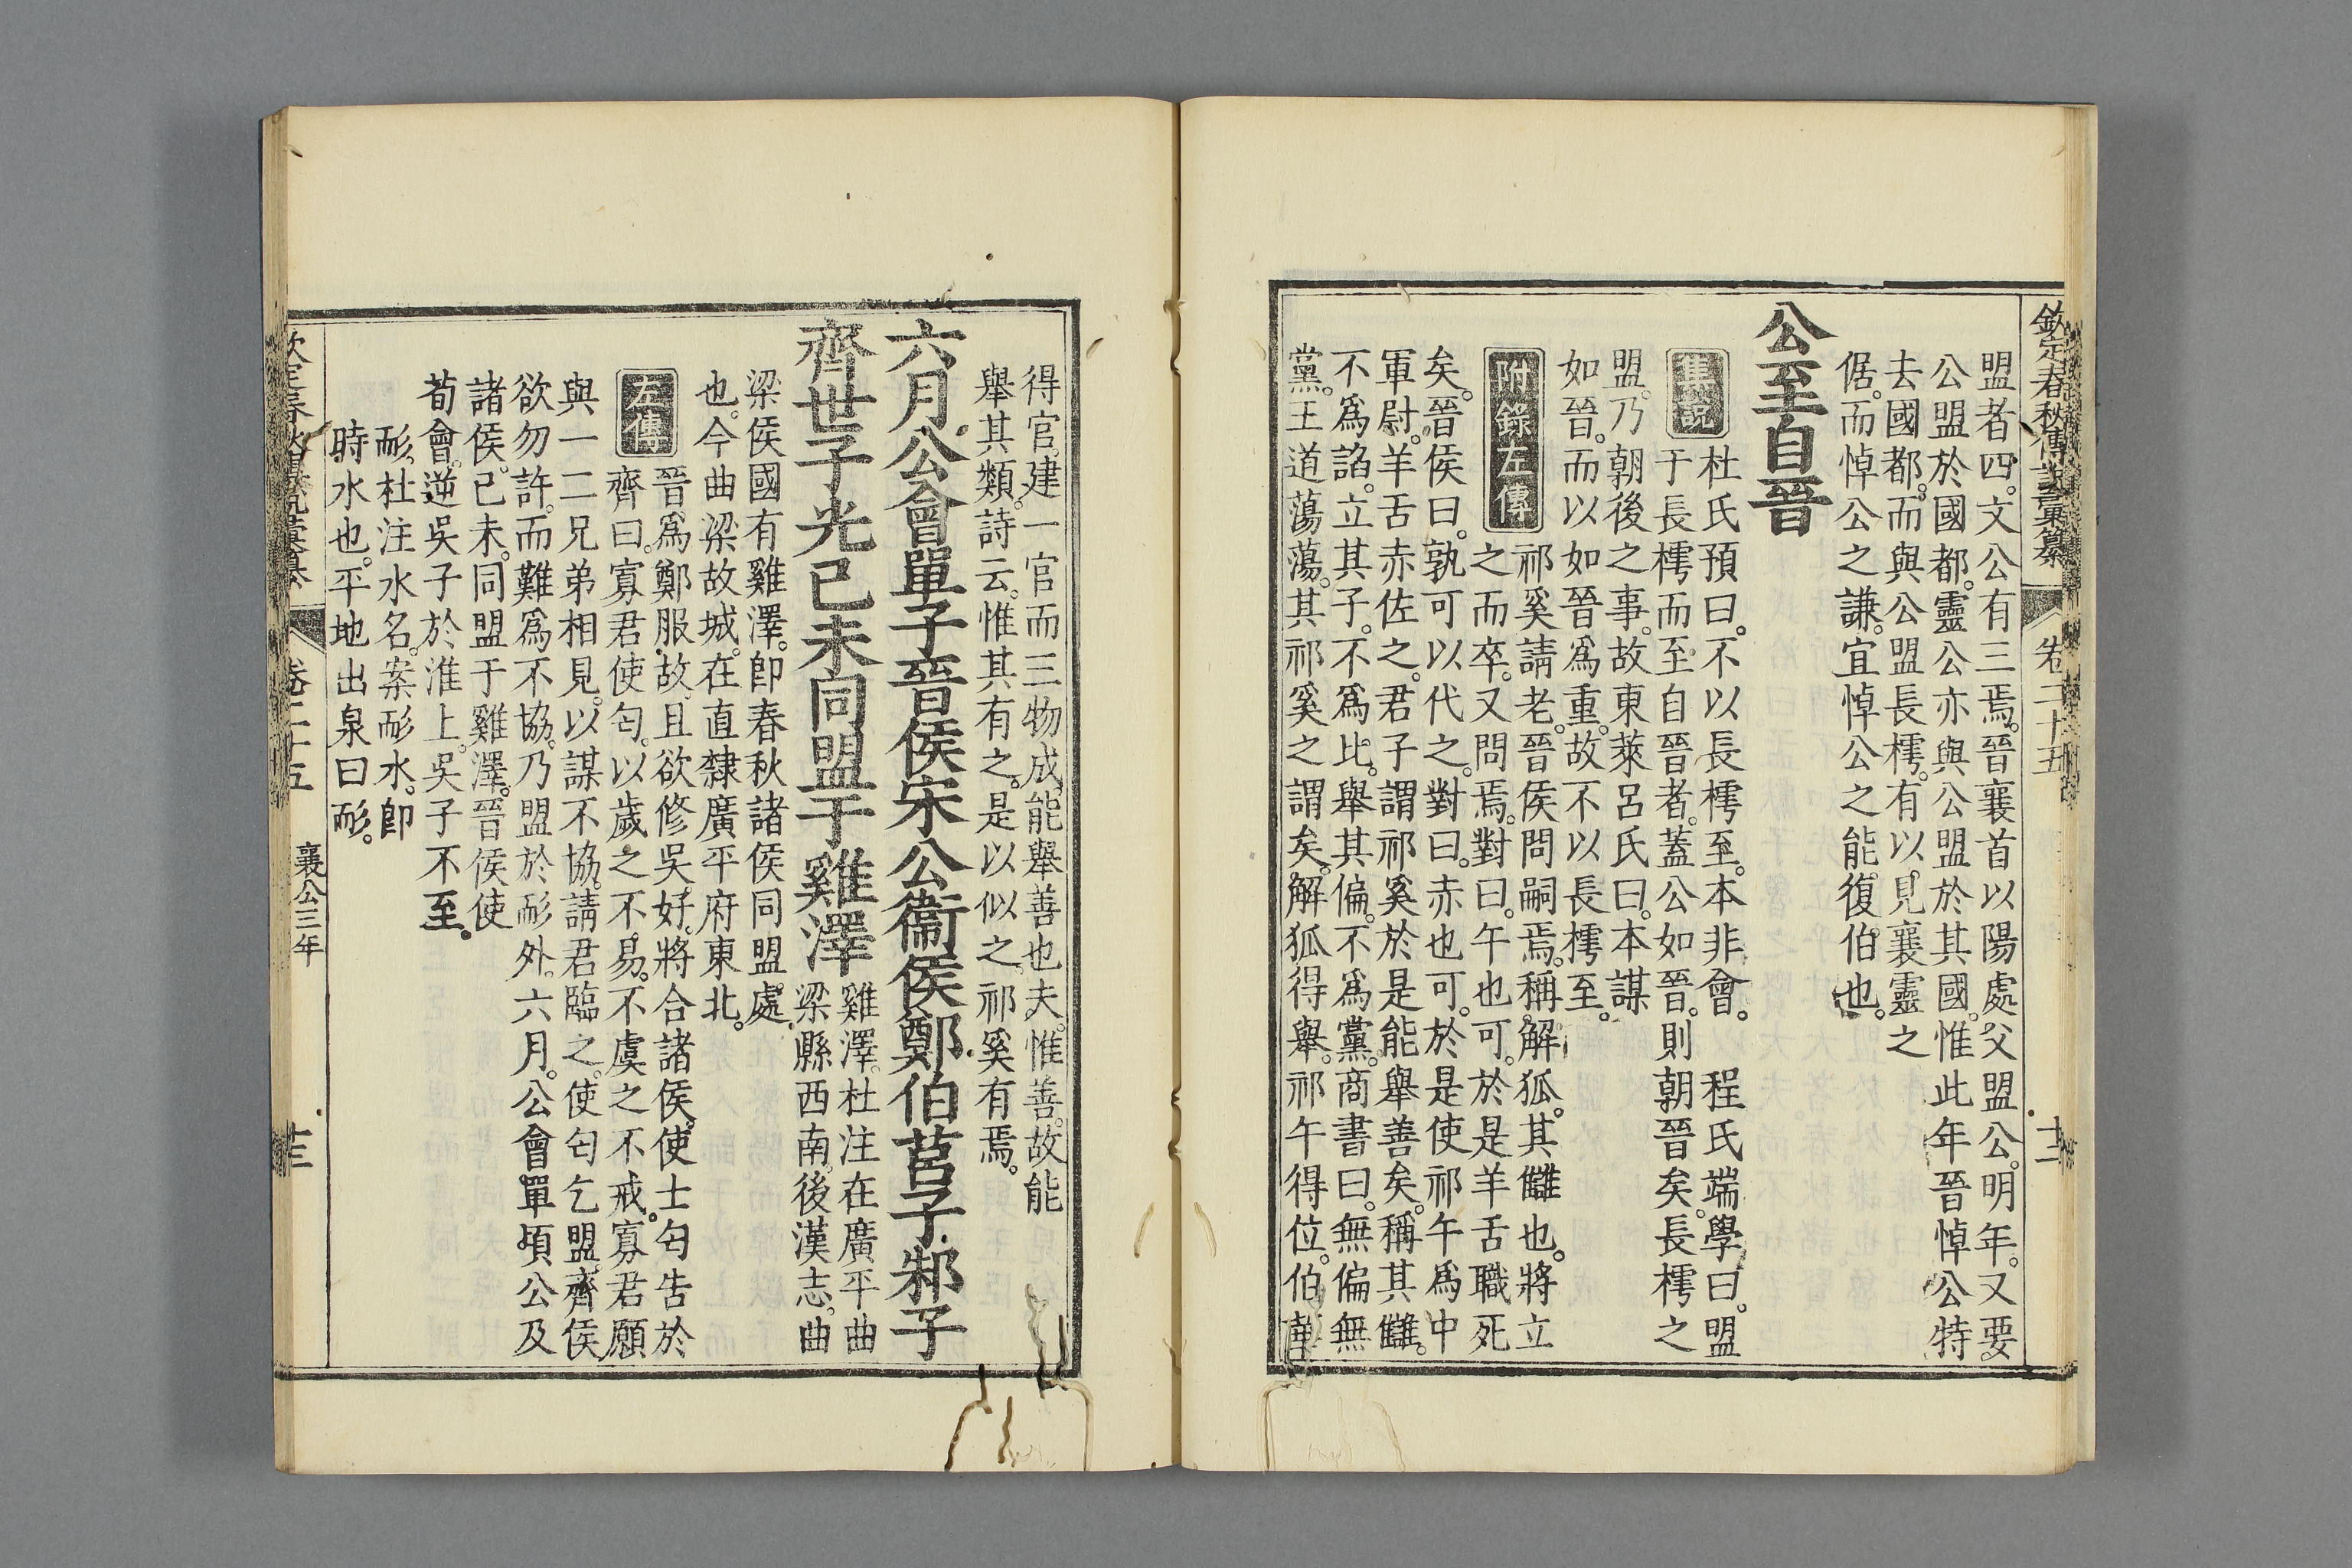 欽定春秋傳說彙纂 卷二十五 十二
盟者四。文公有三焉。晉襄首以陽處父盟公。明年。又要
公盟於國都。靈公亦與公盟於其國。惟此年晉悼公特
去國都。而與公盟長樗。有以見襄靈之
倨。而悼公之謙。宜悼公之能復伯也。
公至自晉
集說 杜氏預曰。不以長樗至。本非會。 程氏端學曰。盟
于長樗而至自晉者。蓋公如晉。則朝晉矣。長樗之
盟。乃朝後之事。故東萊呂氏曰。本謀
如晉。而以如晉爲重。故不以長樗至。
附錄左傳 祁奚請老。晉侯問嗣焉。稱解狐。其讎也。將立
之而卒。又問焉。對曰。午也可。於是羊舌職死
矣。晉侯曰。孰可以代之。對曰。赤也可。於是使祁午爲中
軍尉。羊舌赤佐之。君子謂祁奚於是能舉善矣。稱其讎。
不爲諂。立其子。不爲比。舉其偏。不爲黨。商書曰。無偏無
黨。王道蕩蕩。其祁奚之謂矣。解狐得舉。祁午得位。伯華
得官。建一官而三物成。能舉善也夫。惟善。故能
舉其類。詩云。惟其有之。是以似之。祁奚有焉。
六月公會單子晉侯宋公衞侯鄭伯莒子邾子
齊世子光己未同盟于雞澤 雞澤。杜注在廣平曲
梁縣西南。後漢志。曲
梁侯國有雞澤。卽春秋諸侯同盟處
也。今曲梁故城。在直隸廣平府東北。
左傳 晉爲鄭服故。且欲修吳好。將合諸侯。使士匄告於
齊曰。寡君使匄。以歲之不易。不虞之不戒。寡君願
與一二兄弟相見。以謀不協。請君臨之。使匄乞盟。齊侯
欲勿許。而難爲不協。乃盟於耏外。六月。公會單頃公及
諸侯。己未。同盟于雞澤。晉侯使
荀會。逆吳子於淮上。吳子不至。
耏。杜注水名。案耏水。卽
時水也。平地出泉曰耏。
欽定春秋傳說彙纂 卷二十五 襄公三年 十三